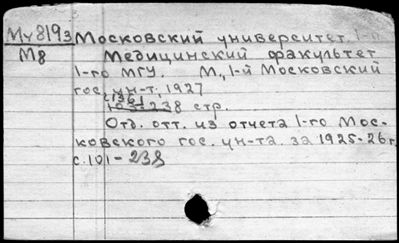 Му819з Московский университет. 1-й
М8 Медицинский факультет
1-го МГУ. М., 1-й Московский
гос. ун-т, 1927
238 стр.
Отд. отт. из отчета 1-го Мос-
ковского гос. ун-та. за 1925-26 г.
с. 101-238